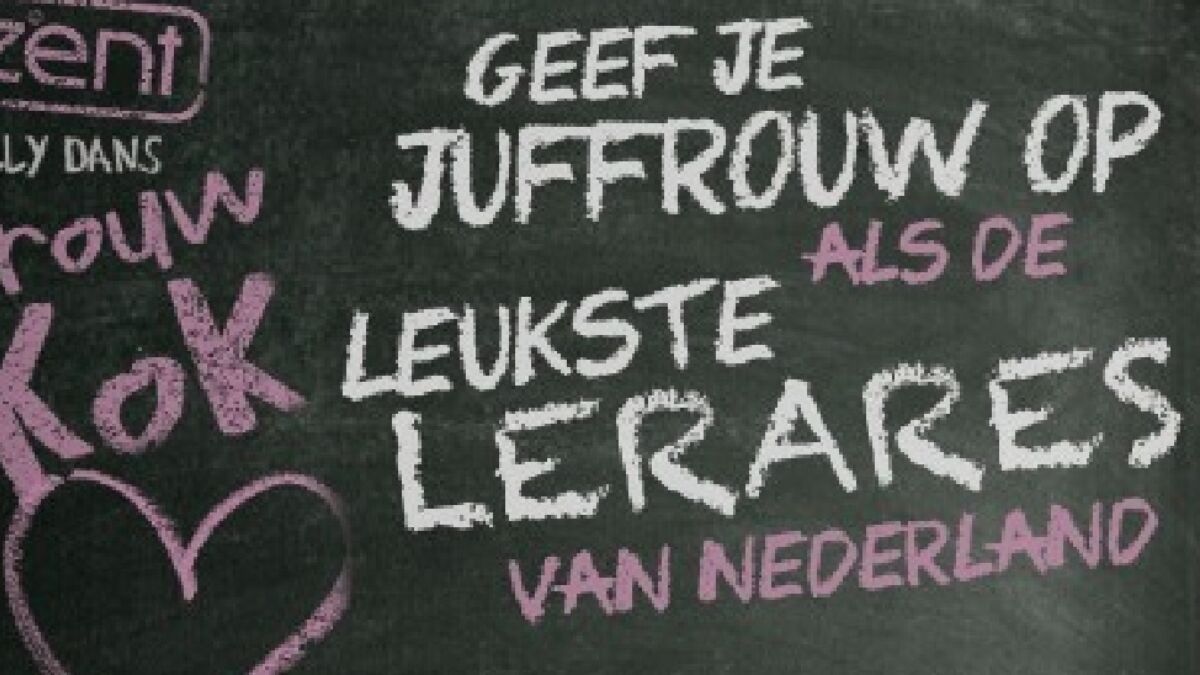 zent
LLY DANS
rouw
KoK
GEEF JE
JUFFROUW OP
ALS DE
LEUKSTE
LERARES
VAN NEDERLAND